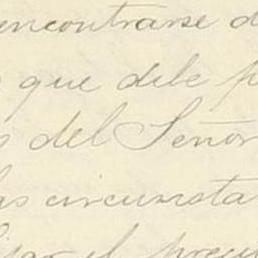 encontrarse d
que debe p
s del Señor
as circunsta
el precu